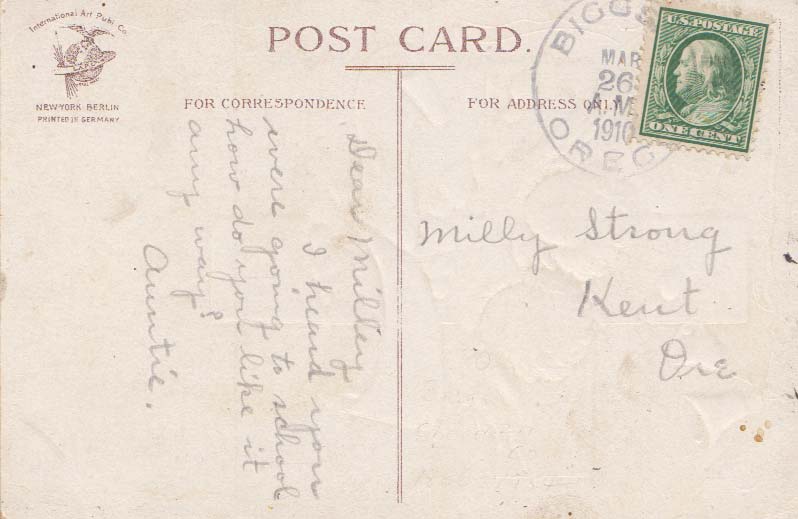 International Art Publ. Co.
NEW-YORK BERLIN
PRINTED IN GERMANY
POST CARD.
FOR CORRESPONDENCE
FOR ADDRESS ONLY
BIGGS
MAR
26
A.M.
1910
OREG
U.S. POSTAGE
ONE CENT
Dear Milley
I heard you
were going to school
how do you like it
any way?
Auntie.
Milly Strong
Kent
Ore